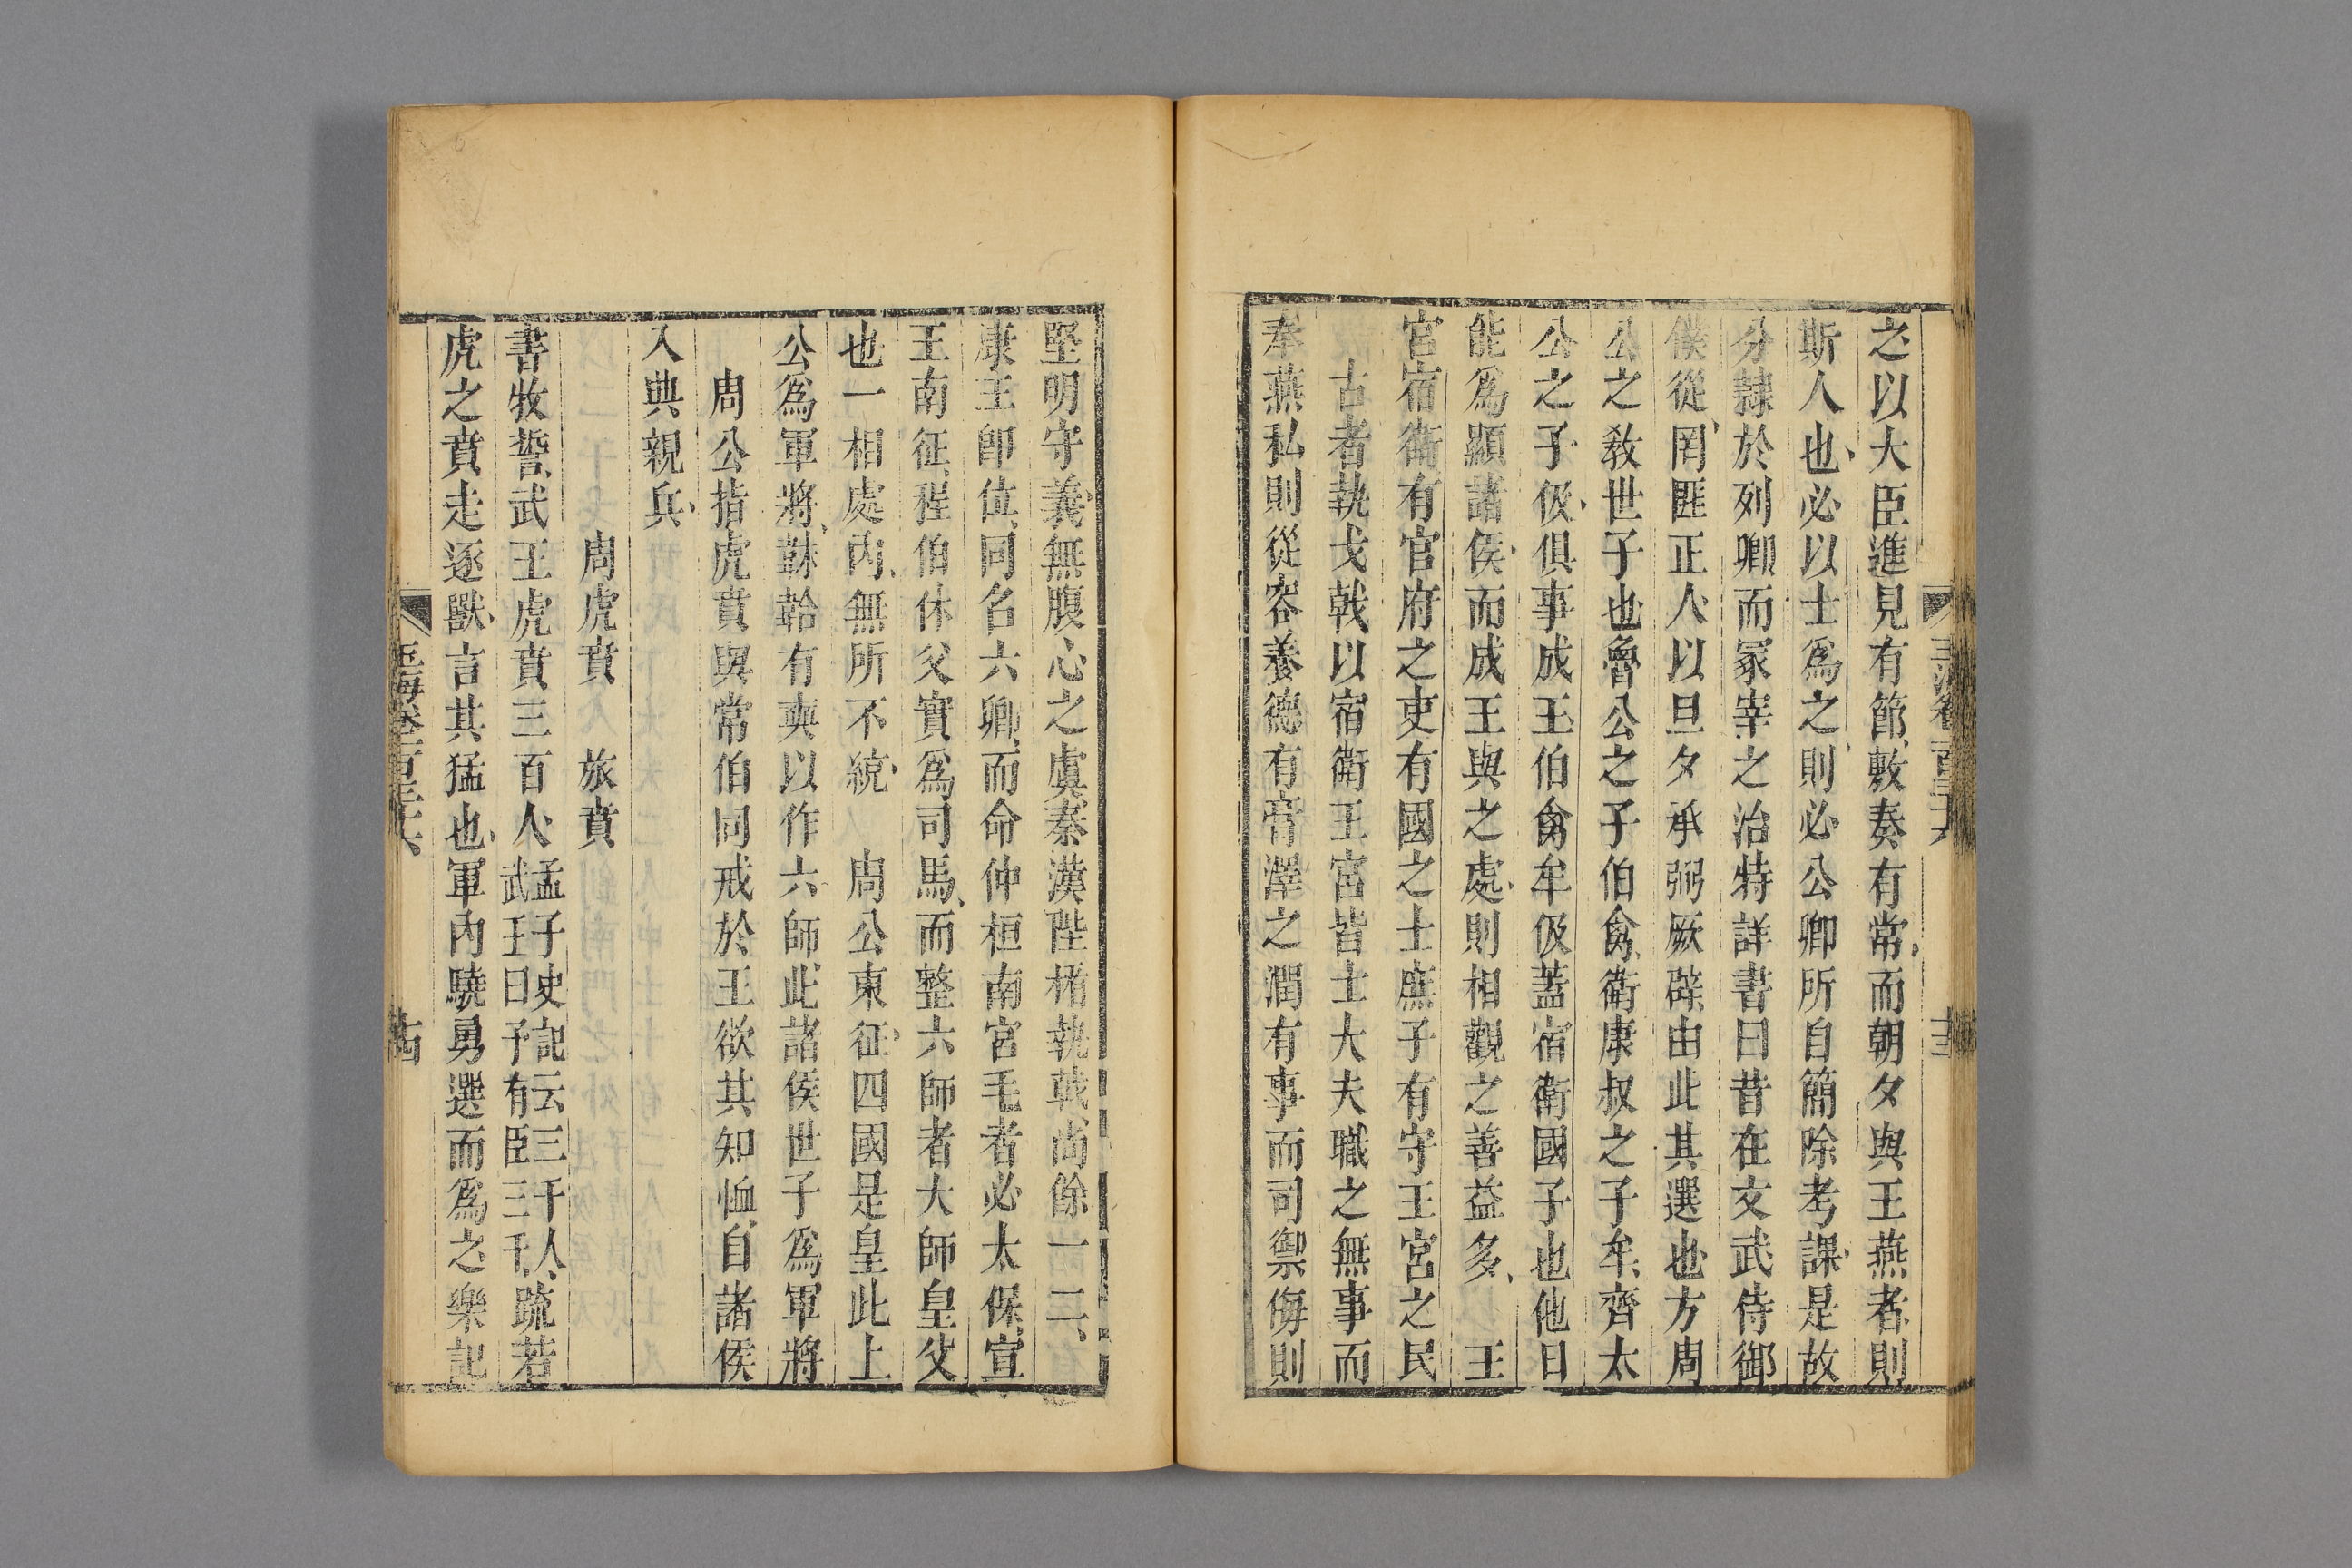 之以大臣進見有節敷奏有常而朝夕與王燕者則
斯人也必以士爲之則必公卿所自簡除考課是故
分隷於列卿而冢宰之治特詳書曰昔在文武侍御
僕從罔匪正人以旦夕承弼厥辟由此其選也方周
公之敎世子也魯公之子伯禽衛康叔之子牟齊太
公之子伋俱事成王伯禽牟伋蓋宿衛國子也他日
能爲顯諸侯而成王與之處則相觀之善益多　王
宮宿衛有官府之吏有國之士庶子有守王宮之民
古者執戈戟以宿衛王宮皆士大夫職之無事而
奉燕私則從容養德有膏澤之潤有事而司禦侮則
玉海卷一百三十六　十三
堅明守義無腹心之虞秦漢陛楯執戟尚餘一二
康王卽位同名六卿而命仲桓南宮毛者必太保宣
王南征程伯休父實爲司馬而整六師者大師皇父
也一相處內無所不統　周公東征四國是皇此上
公爲軍將韎韐有奭以作六師此諸侯世子爲軍將
周公指虎賁與常伯同戒於王欲其知恤自諸侯
入典親兵
周虎賁　旅賁
書牧誓武王虎賁三百人孟子史記云三千人武王曰予有臣三千疏若
虎之賁走逐獸言其猛也軍內驍勇選而爲之樂記
玉海卷一百三十六　十四